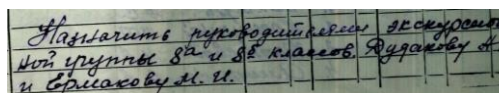 Назначить руководителями экскурсион
ной группы 8а и 8б классов. Дудакову А
и Ермакову М. И.